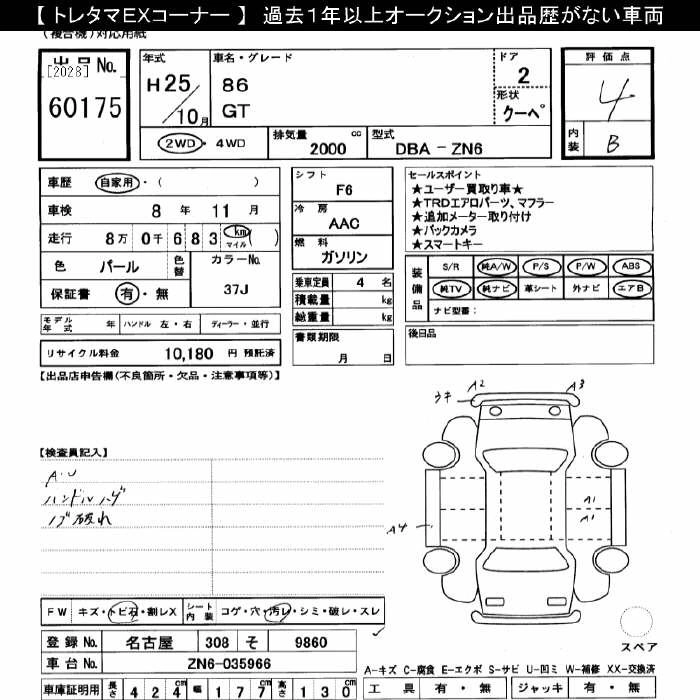 【 トレタマEXコーナー 】 過去1年以上オークション出品歴がない車両
(複合機)対応用紙
出品 No.
[2028]
60175
年式
H 25 / 10 月
車名・グレード
86
GT
ドア
2
形状
クーペ
評価点
4
内装
B
2WD・4WD
排気量 cc
2000
型式
DBA - ZN6
車歴 自家用・( )
車検 8 年 11 月
走行 8万 0千 6 8 3 km マイル ( )
色 パール 色替 カラーNo.
37J
保証書 有・無
モデル年式 年 ハンドル 左・右 ディーラー・並行
リサイクル料金 10,180 円 預託済
シフト
F6
冷房
AAC
燃料
ガソリン
乗車定員 4 名
積載量 kg
総重量 kg
書類期限
月 日
セールスポイント
★ユーザー買取り車★
★TRDエアロパーツ、マフラー
★追加メーター取り付け
★バックカメラ
★スマートキー
装備品
S/R 純A/W P/S P/W ABS
純TV 純ナビ 革シート 外ナビ エアB
ナビ型番:
後日品
【出品店申告欄(不良箇所・欠品・注意事項等)】
【検査員記入】
A・U
ハンドルハゲ
ノブ破れ
ウキ A2 A3
A4
A1
A1
スペア
FW キズ・トビ石・割レX シート内装 コゲ・穴・汚レ・シミ・破レ・スレ
登録 No. 名古屋 308 そ 9860
車台 No. ZN6-035966
車庫証明用 長さ 4 2 4 cm 幅 1 7 7 cm 高さ 1 3 0 cm
A-キズ C-腐食 E-エクボ S-サビ U-凹ミ W-補修 XX-交換済
工具 有・無 ジャッキ 有・無